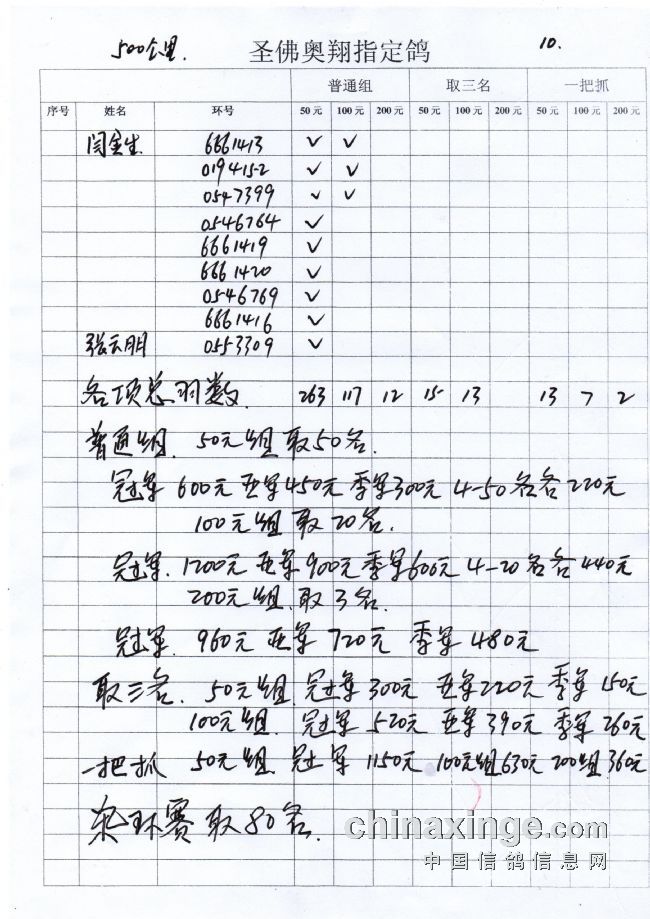 500公里.
圣佛奥翔指定鸽
10.
普通组 取三名 一把抓
序号 姓名 环号 50元 100元 200元 50元 100元 200元 50元 100元 200元
闫金生 6661413 ✓ ✓
019415-2 ✓ ✓
0547399 ✓ ✓
0546764 ✓
6661419 ✓
6661420 ✓
0546769 ✓
6661416 ✓
张云朋 0553309 ✓
各项总羽数 263 117 12 15 13 13 7 2
普通组. 50元组取50名.
冠军 600元 亚军450元 季军300元 4-50名各220元
100元组取20名.
冠军. 1200元 亚军900元 季军600元 4-20名各440元
200元组.取3名.
冠军. 960元 亚军720元 季军480元
取三名. 50元组. 冠军300元 亚军220元 季军150元
100元组. 冠军520元 亚军390元 季军260元
一把抓 50元组. 冠军 1150元 100元组630元 200组360元
杂环赛取80名.
chinaxinge.com
中国信鸽信息网